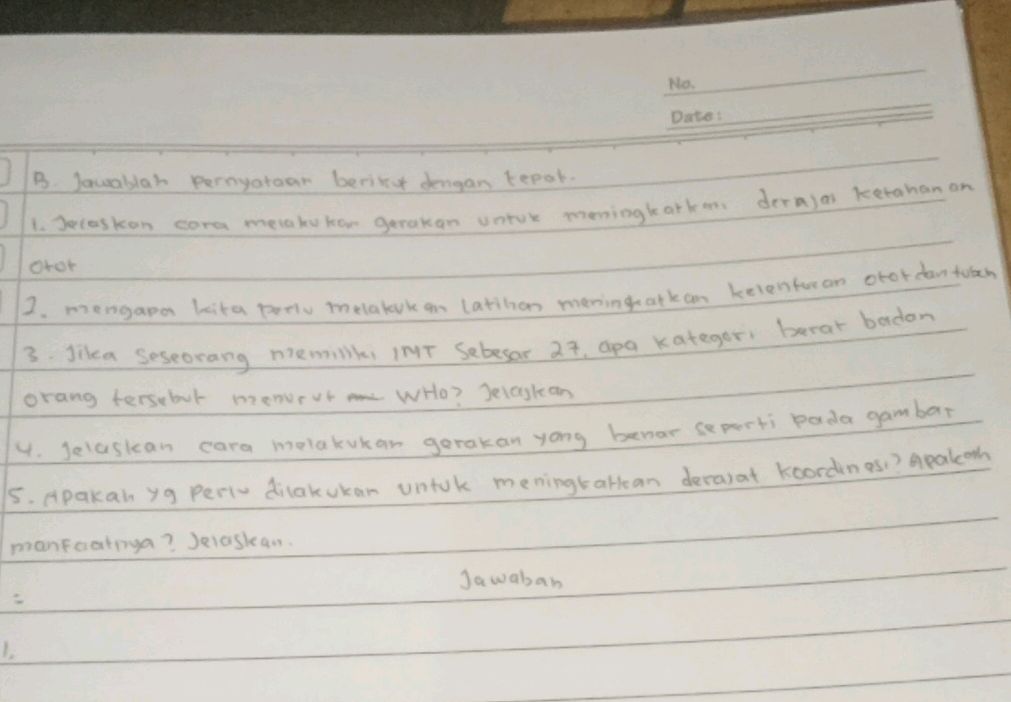 No.
Date:
B. Jawablah pernyataan berikut dengan tepat.
1. Jelaskan cara melakukan gerakan untuk meningkatkan derajai ketahanan
otot
2. mengapa kita perlu melakukan latihan meningkatkan kelenturan otot dan tubuh
3. Jika seseorang memiliki IMT sebesar 27, apa kategori berat badan
orang tersebut menurut WHO? Jelaskan
4. Jelaskan cara melakukan gerakan yang benar seperti pada gambar
5. Apakah yg perlu dilakukan untuk meningkatkan derajat koordinasi? Apakah
manfaatnya? Jelaskan.
Jawaban
=
1.